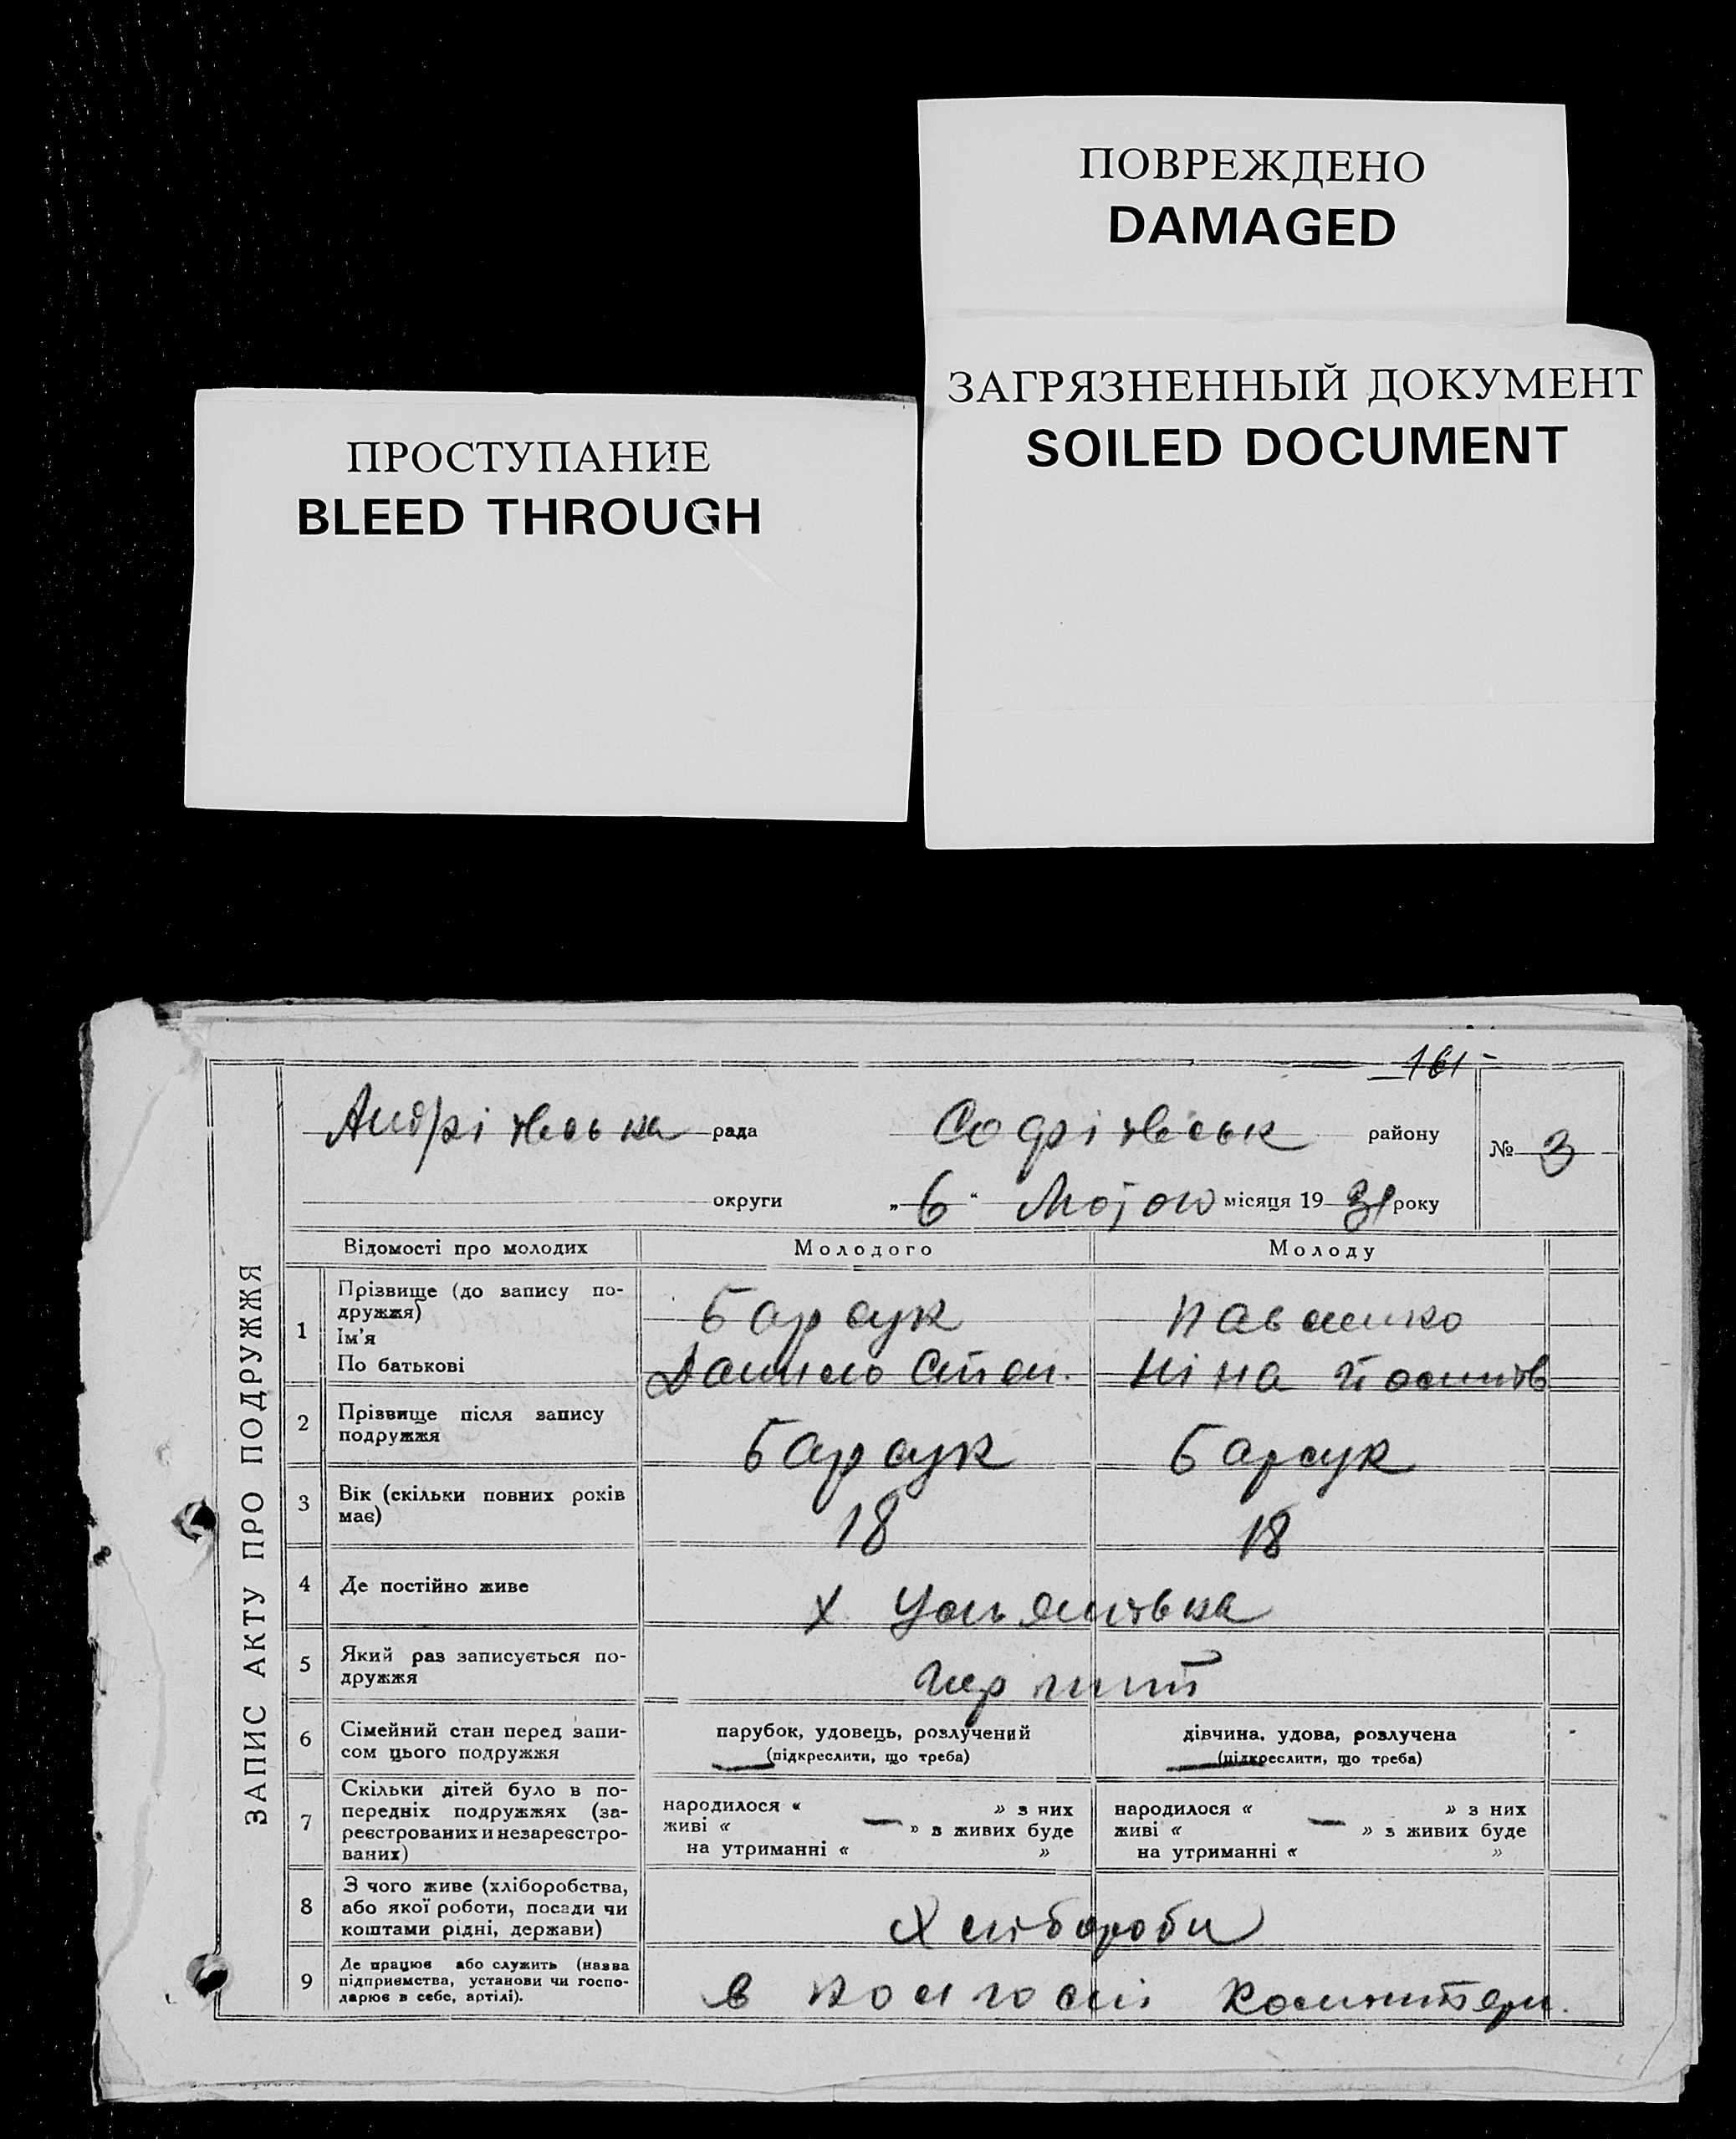 ПОВРЕЖДЕНО
DAMAGED
ЗАГРЯЗНЕННЫЙ ДОКУМЕНТ
SOILED DOCUMENT
ПРОСТУПАНИЕ
BLEED THROUGH
161
ЗАПИС АКТУ ПРО ПОДРУЖЖЯ
Андрівська рада Софіївськ району
№ 3
округи „ 6 “ Лютого місяця 19 31 року
Відомості про молодих Молодого Молоду
1 Прізвище (до запису по-
дружжя) Барсук Павленко
Ім'я
По батькові Данило Степ. Ніна Йосипів
2 Прізвище після запису
подружжя Барсук Барсук
3 Вік (скільки повних років
має) 18 18
4 Де постійно живе х Ульянівка
5 Який раз записується по-
дружжя перший
6 Сімейний стан перед запи-
сом цього подружжя
парубок, удовець, розлучений дівчина, удова, розлучена
(підкреслити, що треба) (підкреслити, що треба)
7 Скільки дітей було в по-
передніх подружжях (за-
реєстрованих и незареєстро-
ваних)
народилося « — » з них народилося « — » з них
живі « » з живих буде живі « » з живих буде
на утриманні « » на утриманні « »
8 З чого живе (хліборобства,
або якої роботи, посади чи
коштами рідні, держави) Хлібороби
9 Де працює або служить (назва
підприємства, установи чи госпо-
дарює в себе, артілі). в колгоспі Комінтерн.